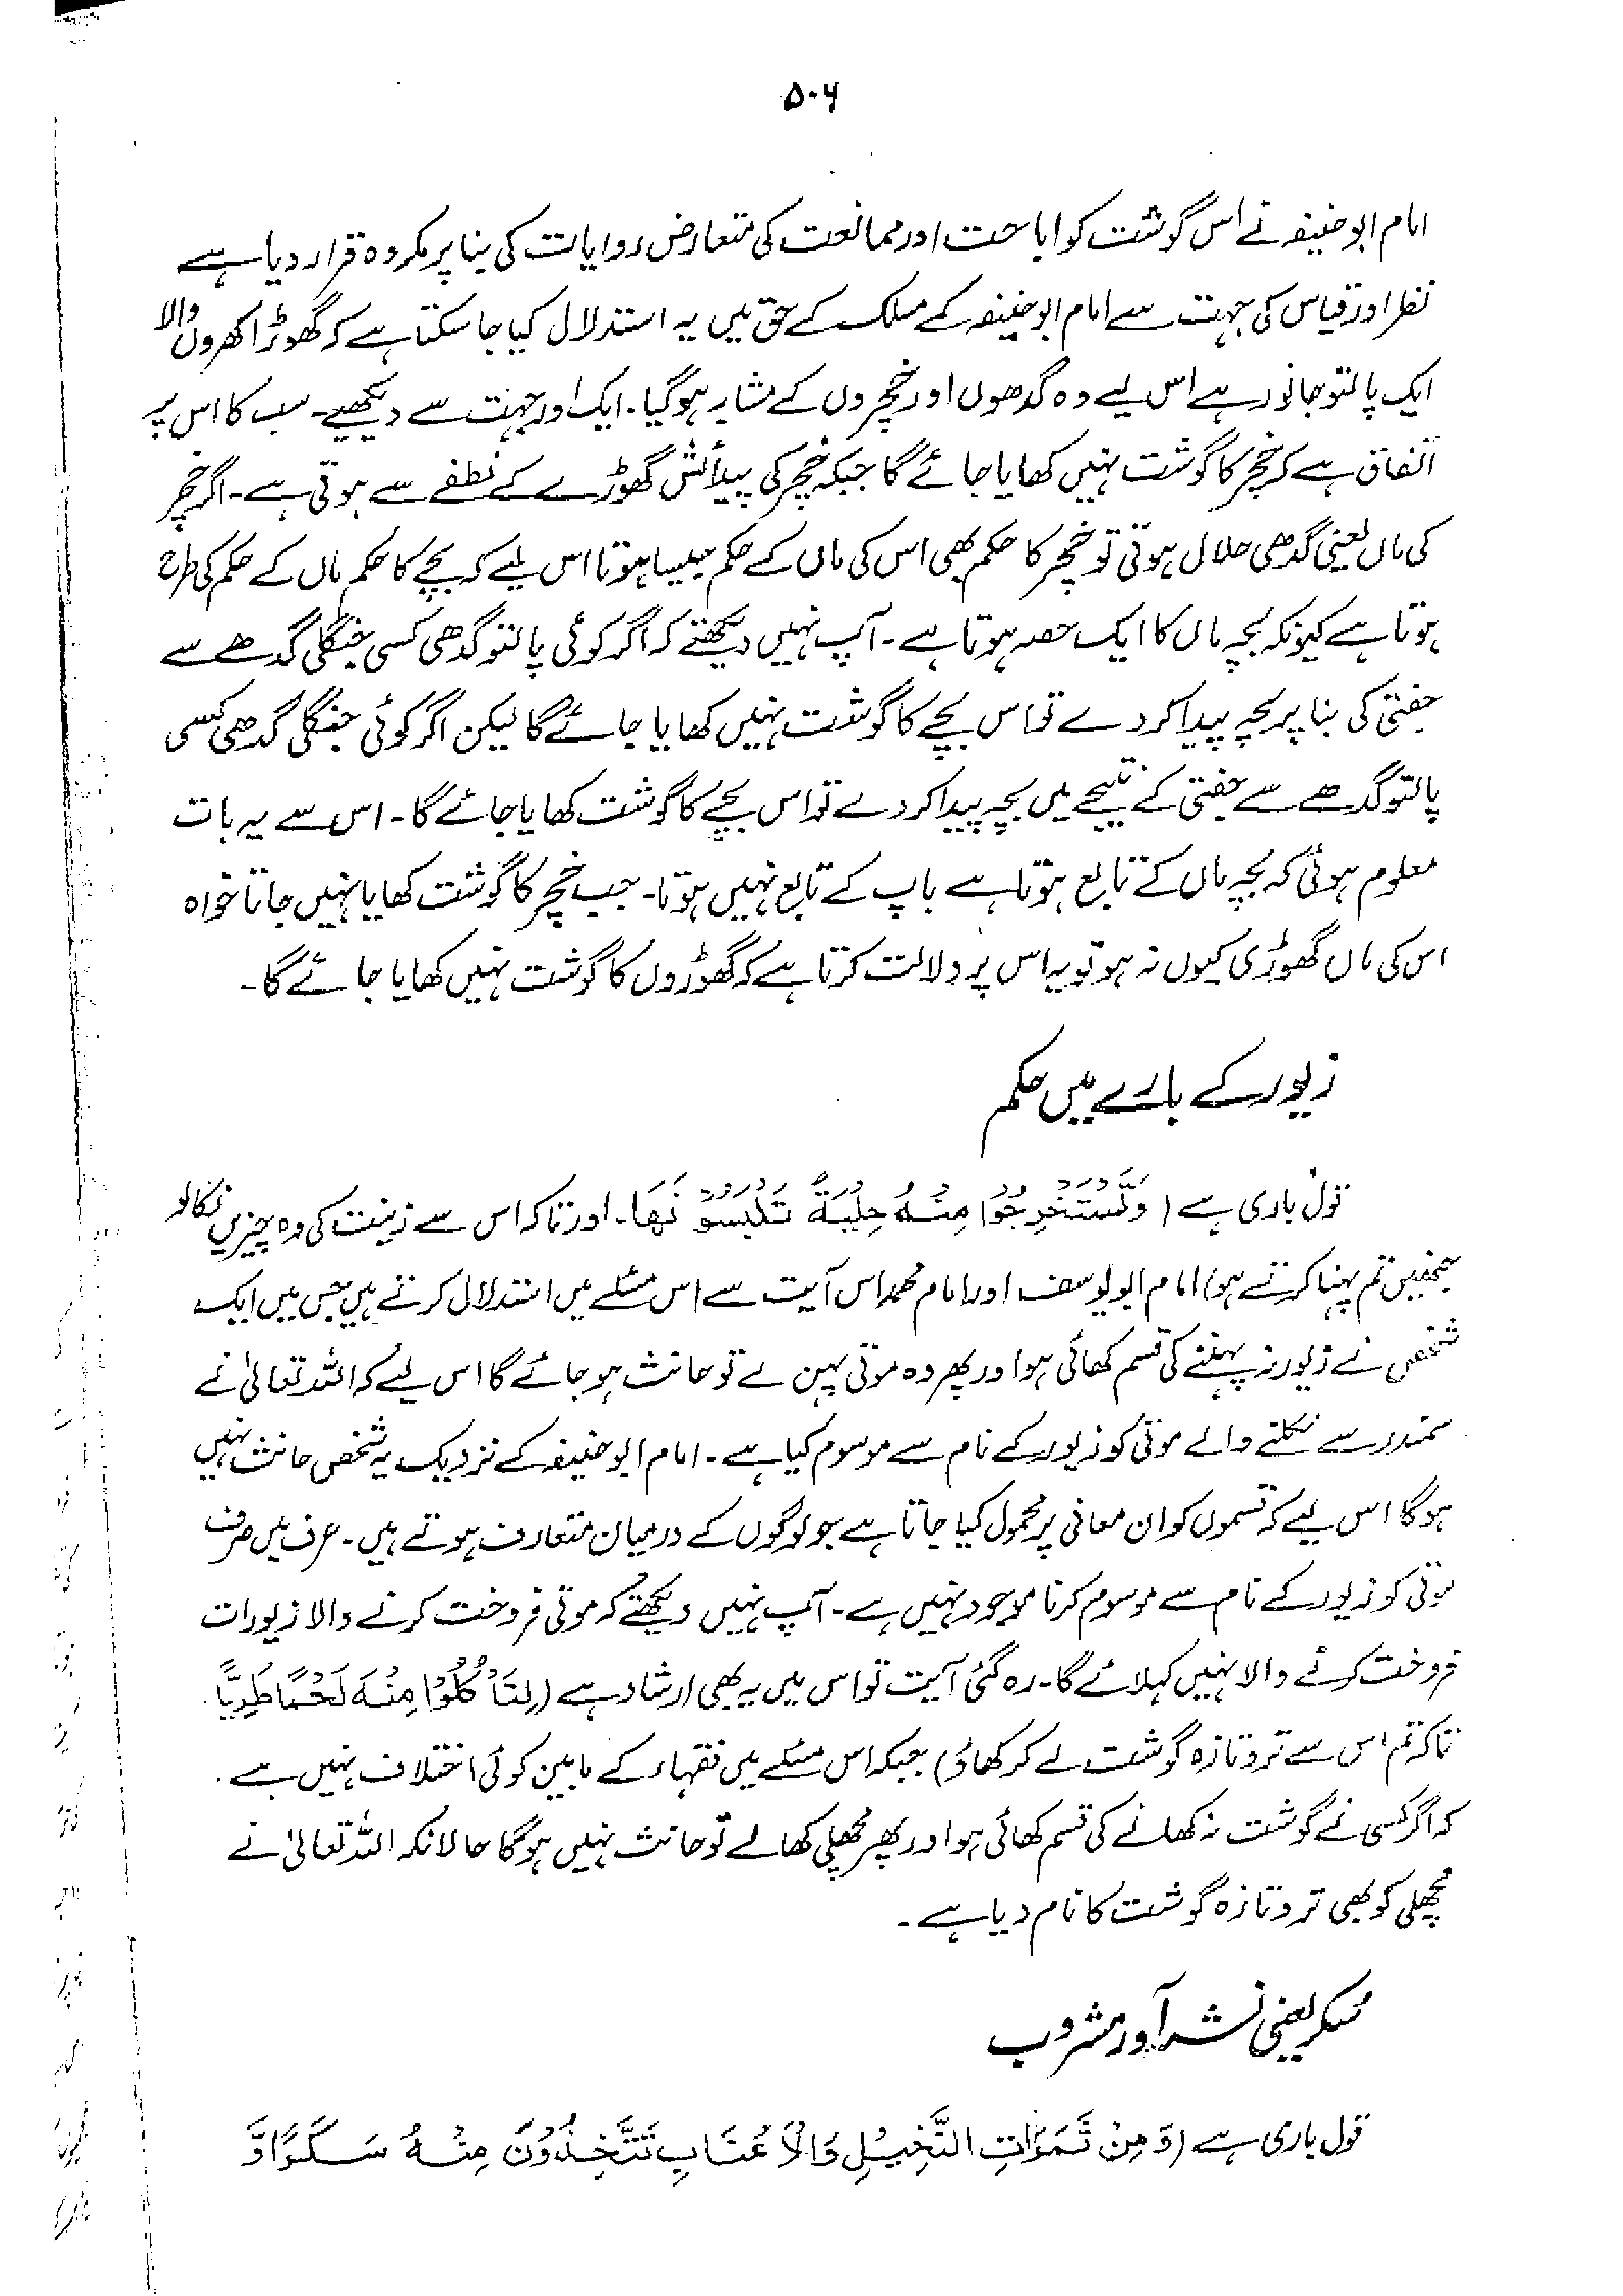 ۵۰۶
امام ابو حنیفہ نے اس گوشت کو اباحت اور ممانعت کی متعارض روایات کی بنا پر مکروہ قرار دیا ہے
نظر اور قیاس کی جہت سے امام ابو حنیفہ کے مسلک کے حق میں یہ استدلال کیا جا سکتا ہے کہ گھوڑا کھروں والا
ایک پالتو جانور ہے اس لیے وہ گدھوں اور خچروں کے مشابہ ہو گیا۔ ایک اور جہت سے دیکھیے۔ سب کا اس پر
اتفاق ہے کہ خچر کا گوشت نہیں کھایا جائے گا جبکہ خچر کی پیدائش گھوڑے کے نطفے سے ہوتی ہے۔ اگر خچر
کی ماں یعنی گدھی حلال ہوتی تو خچر کا حکم بھی اس کی ماں کے حکم جیسا ہوتا اس لیے کہ بچے کا حکم ماں کے حکم کی طرح
ہوتا ہے کیونکہ بچہ ماں کا ایک حصہ ہوتا ہے۔ آپ نہیں دیکھتے کہ اگر کوئی پالتو گدھی کسی جنگلی گدھے سے
جفتی کی بنا پر بچہ پیدا کر دے تو اس بچے کا گوشت نہیں کھایا جائے گا لیکن اگر کوئی جنگلی گدھی کسی
پالتو گدھے سے جفتی کے نتیجے میں بچہ پیدا کر دے تو اس بچے کا گوشت کھایا جائے گا۔ اس سے یہ بات
معلوم ہوئی کہ بچہ ماں کے تابع ہوتا ہے باپ کے تابع نہیں ہوتا۔ جب خچر کا گوشت کھایا نہیں جاتا خواہ
اس کی ماں گھوڑی کیوں نہ ہو تو یہ اس پر دلالت کرتا ہے کہ گھوڑوں کا گوشت نہیں کھایا جائے گا۔
زیور کے بارے میں حکم
قول باری ہے (وَتَسْتَخْرِجُوْا مِنْهُ حِلْيَةً تَلْبَسُوْنَهَا۔ اور تاکہ اس سے زینت کی وہ چیزیں نکالو
جنھیں تم پہنا کرتے ہو) امام ابو یوسف اور امام محمد اس آیت سے اس مسئلے میں استدلال کرتے ہیں جس میں ایک
شخص نے زیور نہ پہننے کی قسم کھائی ہو اور پھر وہ موتی پہن لے تو حانث ہو جائے گا اس لیے کہ اللہ تعالیٰ نے
سمندر سے نکلنے والے موتی کو زیور کے نام سے موسوم کیا ہے۔ امام ابو حنیفہ کے نزدیک یہ شخص حانث نہیں
ہو گا اس لیے کہ قسموں کو ان معانی پر محمول کیا جاتا ہے جو لوگوں کے درمیان متعارف ہوتے ہیں۔ عرف میں صرف
موتی کو زیور کے نام سے موسوم کرنا موجود نہیں ہے۔ آپ نہیں دیکھتے کہ موتی فروخت کرنے والا زیورات
فروخت کرنے والا نہیں کہلائے گا۔ رہ گئی آیت تو اس میں یہ بھی ارشاد ہے (لِتَاْكُلُوْا مِنْهُ لَحْمًا طَرِيًّا۔
تاکہ تم اس سے تروتازہ گوشت لے کر کھاؤ) جبکہ اس مسئلے میں فقہاء کے مابین کوئی اختلاف نہیں ہے۔
کہ اگر کسی نے گوشت نہ کھانے کی قسم کھائی ہو اور پھر مچھلی کھا لے تو حانث نہیں ہو گا حالانکہ اللہ تعالیٰ نے
مچھلی کو بھی تروتازہ گوشت کا نام دیا ہے۔
مسکر یعنی نشہ آور مشروب
قول باری ہے (وَمِنْ ثَمَرَاتِ النَّخِيْلِ وَالْاَعْنَابِ تَتَّخِذُوْنَ مِنْهُ سَكَرًا وَّ